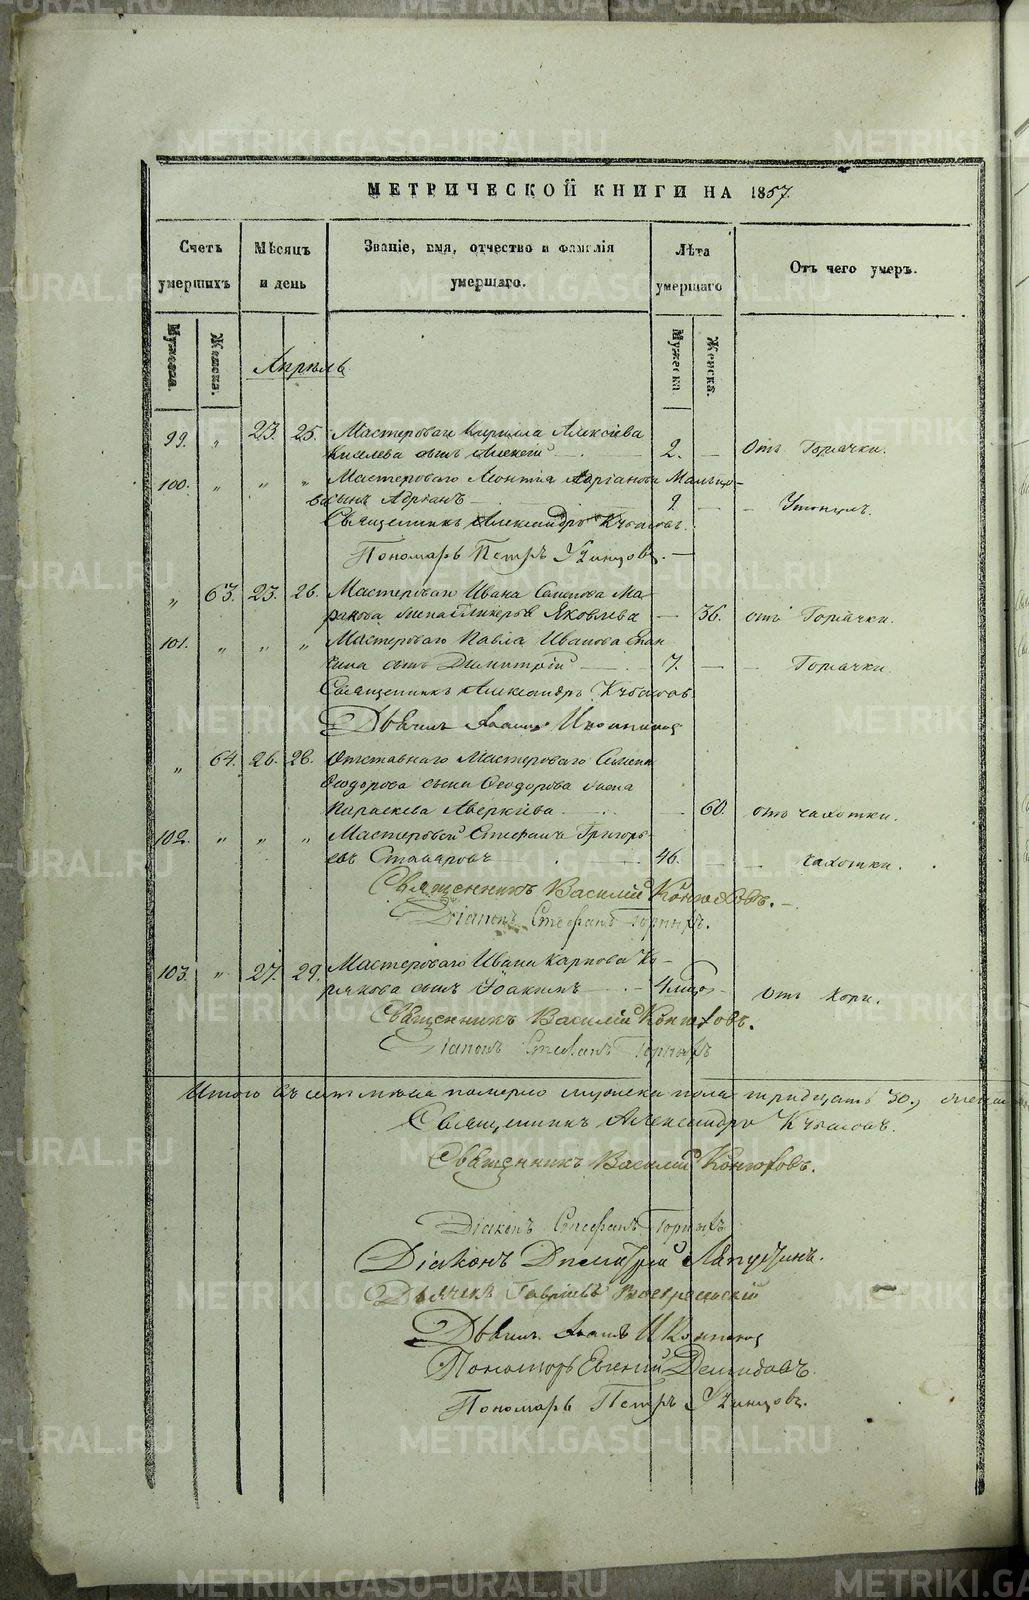 МЕТРИЧЕСКОЙ КНИГИ НА 1857.
Счетъ умершихъ
Мѣсяцъ и день
Званіе, имя, отчество и фамилія умершаго.
Лѣта умершаго
Отъ чего умеръ.
Мужеска.
Женска.
Мужеска
Женска.
Апрѣль
99. " 23. 25. Мастероваго Кирилла Алексѣева
Киселева сынъ Алексій 2. — Отъ Горячки.
100. " " " Мастероваго Леонтія Адріанова
сынъ Адріанъ 2 — — Утонулъ.
Священникъ Александръ
Пономарь Петръ Удинцовъ.
" 63. 23. 26. Мастероваго Ивана
жена Гликерья Яковлева — 36. отъ Горячки.
101. " " " Мастероваго Павла Иванова
сынъ Димитрій 7. — — Горячки.
Священникъ Александръ
Дьячекъ Іоаннъ Иконниковъ
" 64. 26. 28. Отставнаго Мастероваго Семена
Ѳеодорова сына Ѳеодорова жена
Параскева Аверкіева 60. отъ чахотки.
102. " " " Мастеровой Стефанъ Григорь-
евъ 46. — — чахотки.
Священникъ Василій Конюховъ.
Діаконъ Стефанъ Горныхъ.
103. " 27. 29. Мастероваго Ивана Карпова Ко-
рякова сынъ Іоакимъ 4 — отъ Кори.
Священникъ Василій Конюховъ.
Діаконъ Стефанъ Горныхъ
Итого въ померло мужеска пола тридцать 30.,
Священникъ Александръ
Священникъ Василій Конюховъ.
Діаконъ Стефанъ Горныхъ
Діаконъ Димитрій Ляпустинъ.
Дьячекъ Гавріилъ Воскресенскій
Дьячекъ Іоаннъ Иконниковъ
Пономарь Евгеній Демидовъ.
Пономарь Петръ Удинцовъ.
METRIKI.GASO-URAL.RU